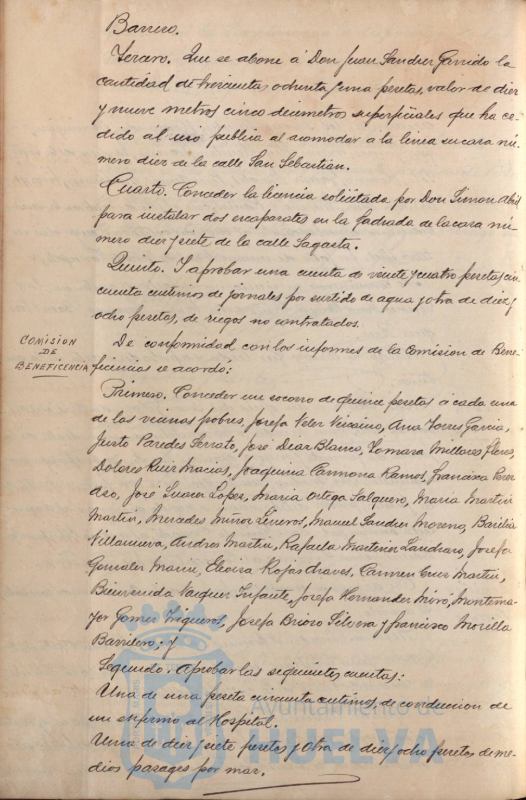 Barrero.
Tercero. Que se abone á Don Juan Sandez Garrido la
cantidad de trescientas ochenta y una pesetas, valor de diez
y nueve metros cinco decimetros superficiales que ha ce-
dido ál uso público al acomodar á la linea su casa nú-
mero diez de la calle San Sebastian.
Cuarto. Conceder la licencia solicitada por Don Simon Abril
para instalar dos escaparates en la fachada de la casa nú-
mero diez y siete de la calle Sagasta.
Quinto. Y aprobar una cuenta de veinte y cuatro pesetas cin-
cuenta centimos de jornales por surtido de agua y otra de diez y
ocho pesetas, de riegos no contratados.
COMISION
DE
BENEFICENCIA
De conformidad con los informes de la Comision de Bene-
ficencia se acordó:
Primero. Conceder un socorro de quince pesetas á cada una
de las vecinas pobres, Josefa Veler, Ana Torres Garcia,
Justo Paredes Serrato, José Diaz Blanco, Tomasa Flores,
Dolores Ruiz Macias, Joaquina Carmona Ramos, Francisca
José Suarez Lopez, Maria Ortega Salguero, Maria Martin
Martin, Mercedes Muñoz, Manuel Sandez Moreno,
Villanueva, Andres Martin, Rafaela Martinez, Josefa
Gonzalez Marin, Elvira Rojas Chaves, Carmen Cruz Martin,
Bienvenida Vazquez Infante, Josefa Hernandez Moro, Montema-
yor Gomez Trigueros, Josefa Brioso Silvera y Francisco Morilla
Barrilero; y
Segundo. Aprobar las siguientes cuentas:
Una de una peseta cincuenta centimos, de conduccion de
un enfermo al Hospital.
Una de diez y siete pesetas y otra de diez y ocho pesetas de me-
dios pasages por mar.
Ayuntamiento de
HUELVA